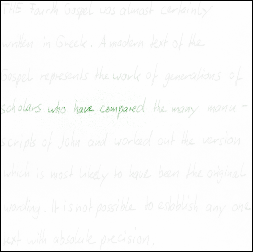 This Fourth Gospel was almost certainly
written in Greek. A modern text of the
Gospel represents the work of generations of
scholars who have compared the many manu-
scripts of John and worked out the version
which is most likely to have been the original
wording. It is not possible to establish any one
text with absolute precision.